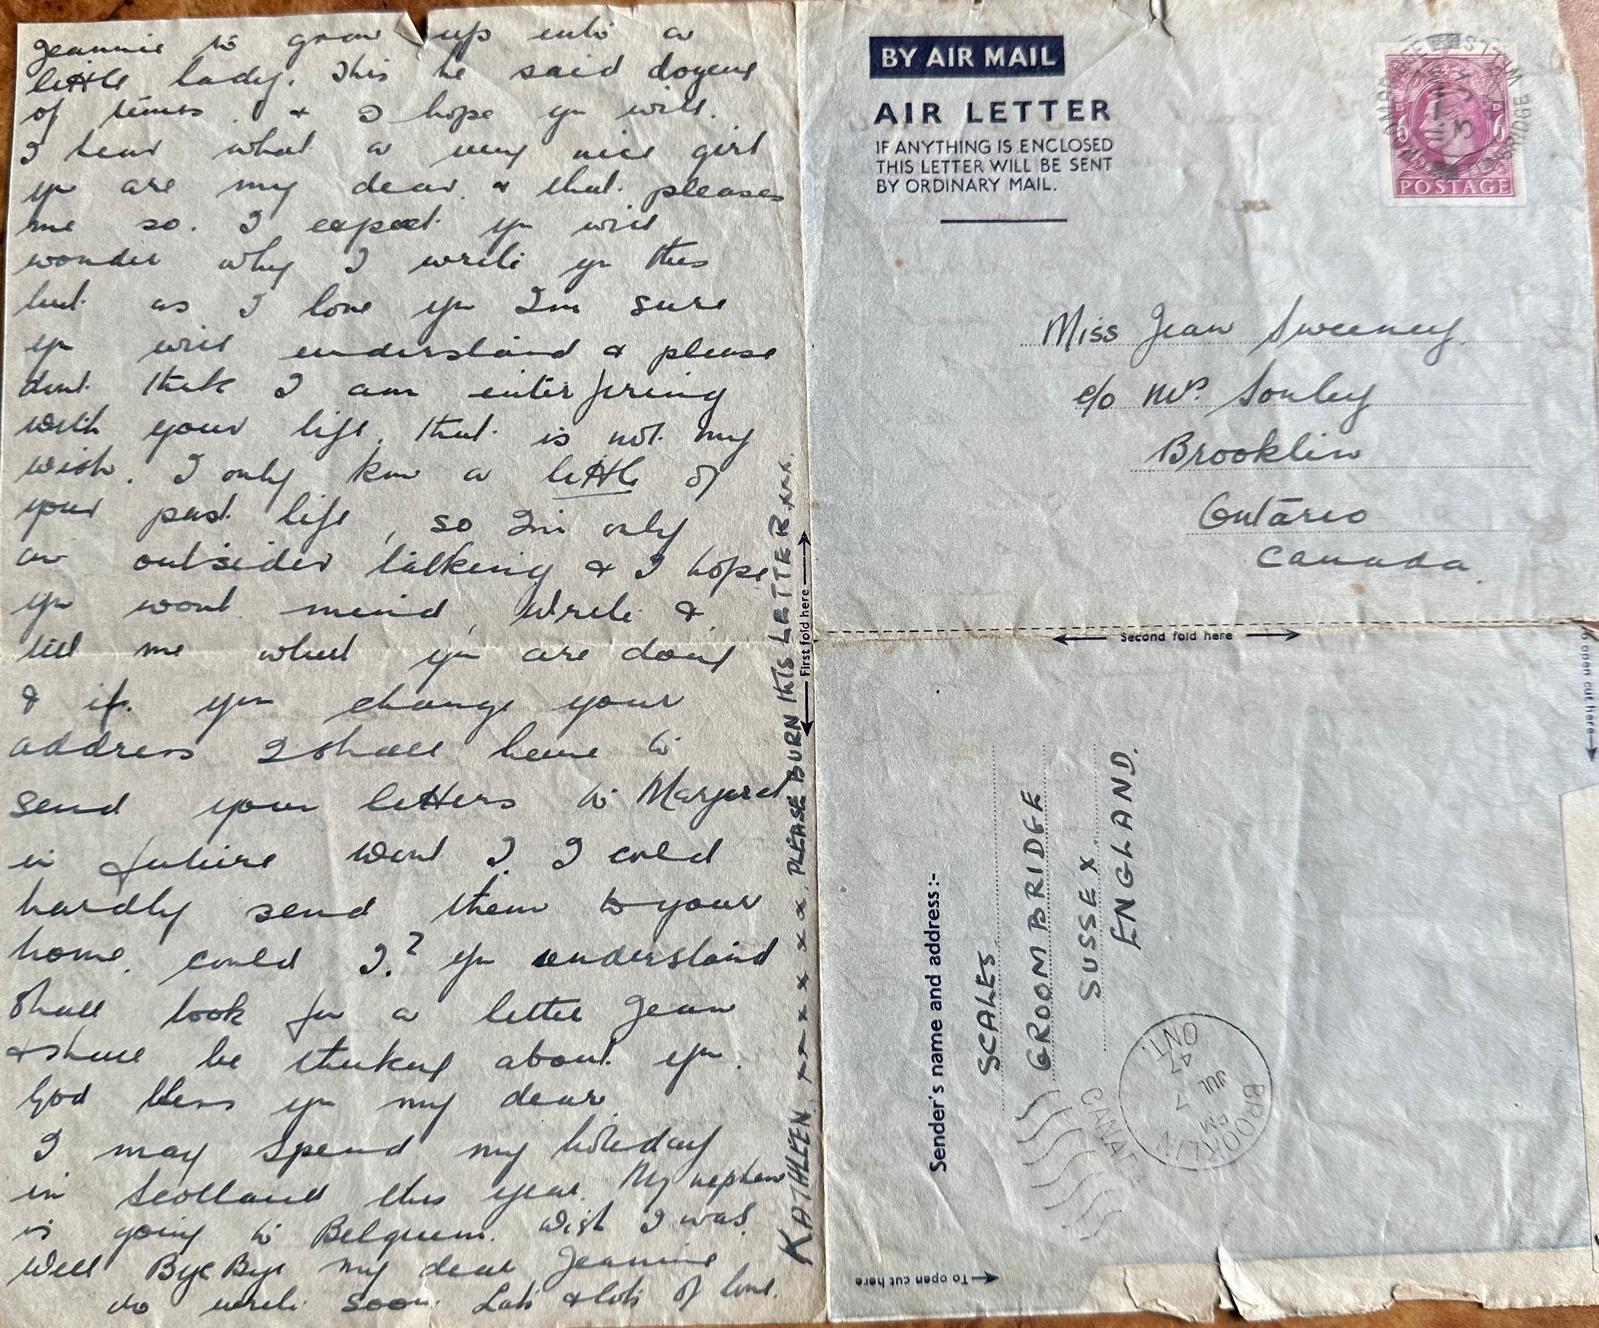 Jeannie to grow up into a
little lady. This he said dozens
of times. & I hope yu will.
I hear what a very nice girl
yu are my dear & that pleases
me so. I expect yu will
wonder why I write yu this
but as I love yu Im sure
yu will understand & please
dont think I am enterfering
with your life. that is not my
wish. I only know a little of
your past life, so Im only
an outsider talking & I hope
yu wont mind, write &
tell me what yu are doing
& if yu change your
address I shall have to
send your letters to Margaret
in future wont I. I could
hardly send them to your
home. could I.? yu understand
shall look for a letter Jean
& shall be thinking about yu.
God bless yu my dear.
I may spend my holiday
in Scotland this year. My nephew
is going to Belguem. Wish I was.
Well Bye Bye my dear Jeannie
do write soon. Lots & lots of love.
KATHLEEN. x x x x x x x. PLEASE BURN THIS LETTER xxx.
First fold here
BY AIR MAIL
AIR LETTER
IF ANYTHING IS ENCLOSED
THIS LETTER WILL BE SENT
BY ORDINARY MAIL.
POSTAGE
Miss Jean Sweeney.
c/o Mrs
Brooklin
Ontario
Canada.
Second fold here
To open cut here
Sender's name and address:-
SCALES
GROOMBRIDGE
SUSSEX
ENGLAND.
BROOKLIN
PM
JUL 7
47
ONT.
CANADA
To open cut here